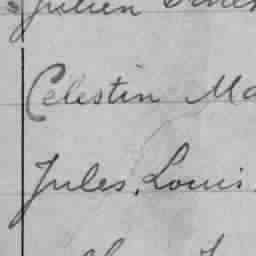 Julien
Celestin Ma
Jules, Louis